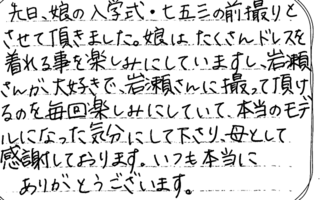 先日、娘の入学式・七五三の前撮りと
させて頂きました。娘はたくさんドレスを
着れる事を楽しみにしていますし、岩瀬
さんが大好きで、岩瀬さんに撮って頂け
るのを毎回楽しみにしていて、本当のモデ
ルになった気分にして下さり、母として
感謝しております。いつも本当に
ありがとうございます。